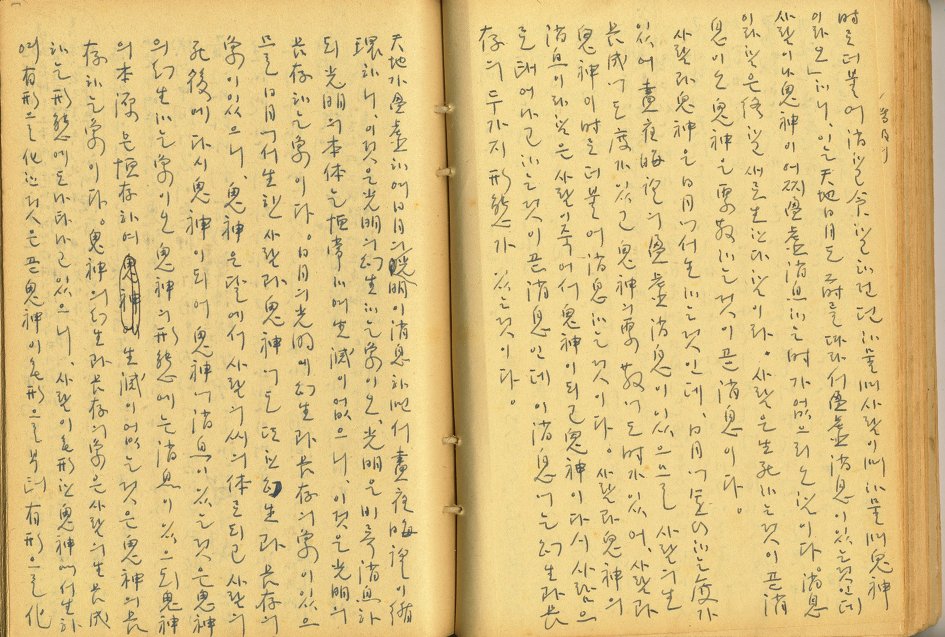 時로더불어消 하물며사람이며하물며鬼神
이랴오」하니,이는天地日月도時를따라서盈虛消息이있는것인데
사람이나鬼神이어찌盈虛消息하는때가없으리오함이다。消息
이라함은 새로生한다함이라。사람은生死하는것이곧消
息이오鬼神은聚散하는것이곧消息이다。
사람과鬼神은日月에서生하는것인데,日月에運行하는度가
있어晝夜晦朔의盈虛消息이있으므로사람의生
長成에도度가있고鬼神의聚散에도時가있어,사람과
鬼神이時로더불어消息하는것이다。사람과鬼神의
消息이라함은사람이죽어서鬼神이되고鬼神이다시사람으
로태어나고하는것이곧消息인데이消息에는幻生과長
存의두가지形態가있는것이다。
天地가盈虛함에日月의光明이消息하면서晝夜晦朔이循
環하니,이것은光明의幻生하는象이오,光明은비록消息하
되光明의本体는恒常하여生滅이없으니,이것은光明의
長存하는象이다。日月의光明에幻生과長存의象이있으
므로日月에서生한사람과鬼神에도또한幻生과長存의
象이있으니,鬼神은달에서사람의씨의体로되고사람의
死後에다시鬼神이되어鬼神에消息이있는것은鬼神
의幻生하는象이오鬼神의形態에는消息이있으되鬼神
의本源은恒存하여生滅이없는것은鬼神의長
存하는象이다。鬼神의幻生과長存의象은사람의生長成
하는形態에도나타나고있으니,사람이無形한鬼神에서生하
여有形으로化한것은곧鬼神이無形으로부터有形으로化